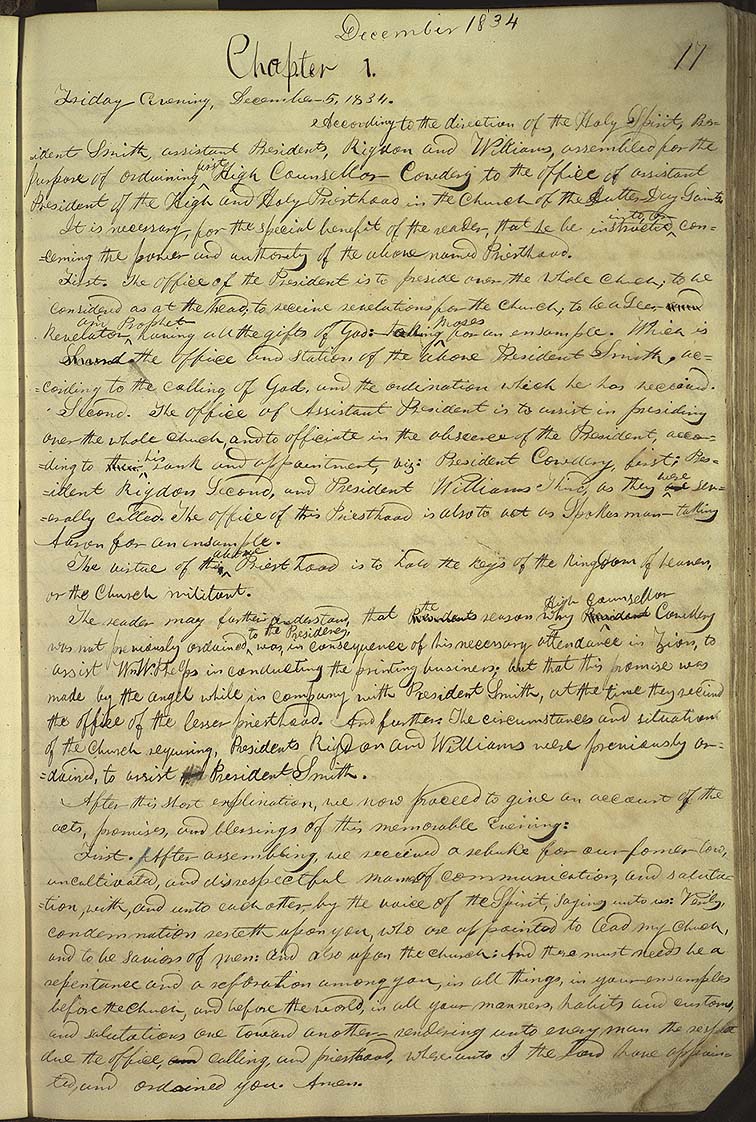 December 1834
17
Chapter 1.
Friday Evening, December 5, 1834.
According to the direction of the Holy Spirit, Pres-
ident Smith, assistant Presidents, Rigdon and Williams, assembled for the
purpose of ordaining first High Counsellor Cowdery to the office of assistant
President of the High and Holy Priesthood in the Church of the Latter Day Saints.
It is necessary, for the special benefit of the reader, that he be instructed into, or con-
cerning the power and authority of the above named Priesthood.
First. The office of the President is to preside over the whole church; to be
considered as at the head; to receive revelations for the church; to be a Seer, and
Revelator and Prophet having all the gifts of God: taking Moses for an ensample. Which is
the office and station of the above President Smith, ac-
=cording to the calling of God, and the ordination which he has received.
Second. The office of Assistant President is to assist in presiding
over the whole church, and to officiate in the abscence of the President, acco-
=ding to their his rank and appointment, viz: President Cowdery, first; Pres-
=ident Rigdon Second, and President Williams Third, as they were sev-
=erally called. The office of this Priesthood is also to act as Spokesman—taking
Aaron for an ensample.
The virtue of this above Priesthood is to hold the keys of the kingdom of heaven,
or the Church militant.
The reader may further understand, that Presidents the reason why High Counsellor President Cowdery
was not previously ordained to the Presidency, was, in consequence of his necessary attendance in Zion, to
assist Wm W. Phelps in conducting the printing business; but that this promise was
made by the angel while in company with President Smith, at the time they recievd
the office of the lesser priesthood. And further: The circumstances and situation
of the Church requiring, Presidents Rigdon and Williams were previously or-
=dained, to assist President Smith.
After this short explination, we now proceed to give an account of the
acts, promises, and blessings of this memorable Evening:
First. After assembling, we received a rebuke for our former low,
uncultivated, and disrespectful manner of communication, and saluta-
=tion, with, and unto each other, by the voice of the Spirit, saying unto us: Verily,
condemnation resteth upon you, who are appointed to lead my Church,
and to be saviors of men: and also upon the church: And there must needs be a
repentance and a reforation among you, in all things, in your ensamples
before the Church, and before the world, in all your manners, habits and customs,
and salutations one toward another—rendering unto every man the respect
due the office, and calling, and priesthood, whereunto I the Lord have appoin-
ted, and ordained you. Amen.